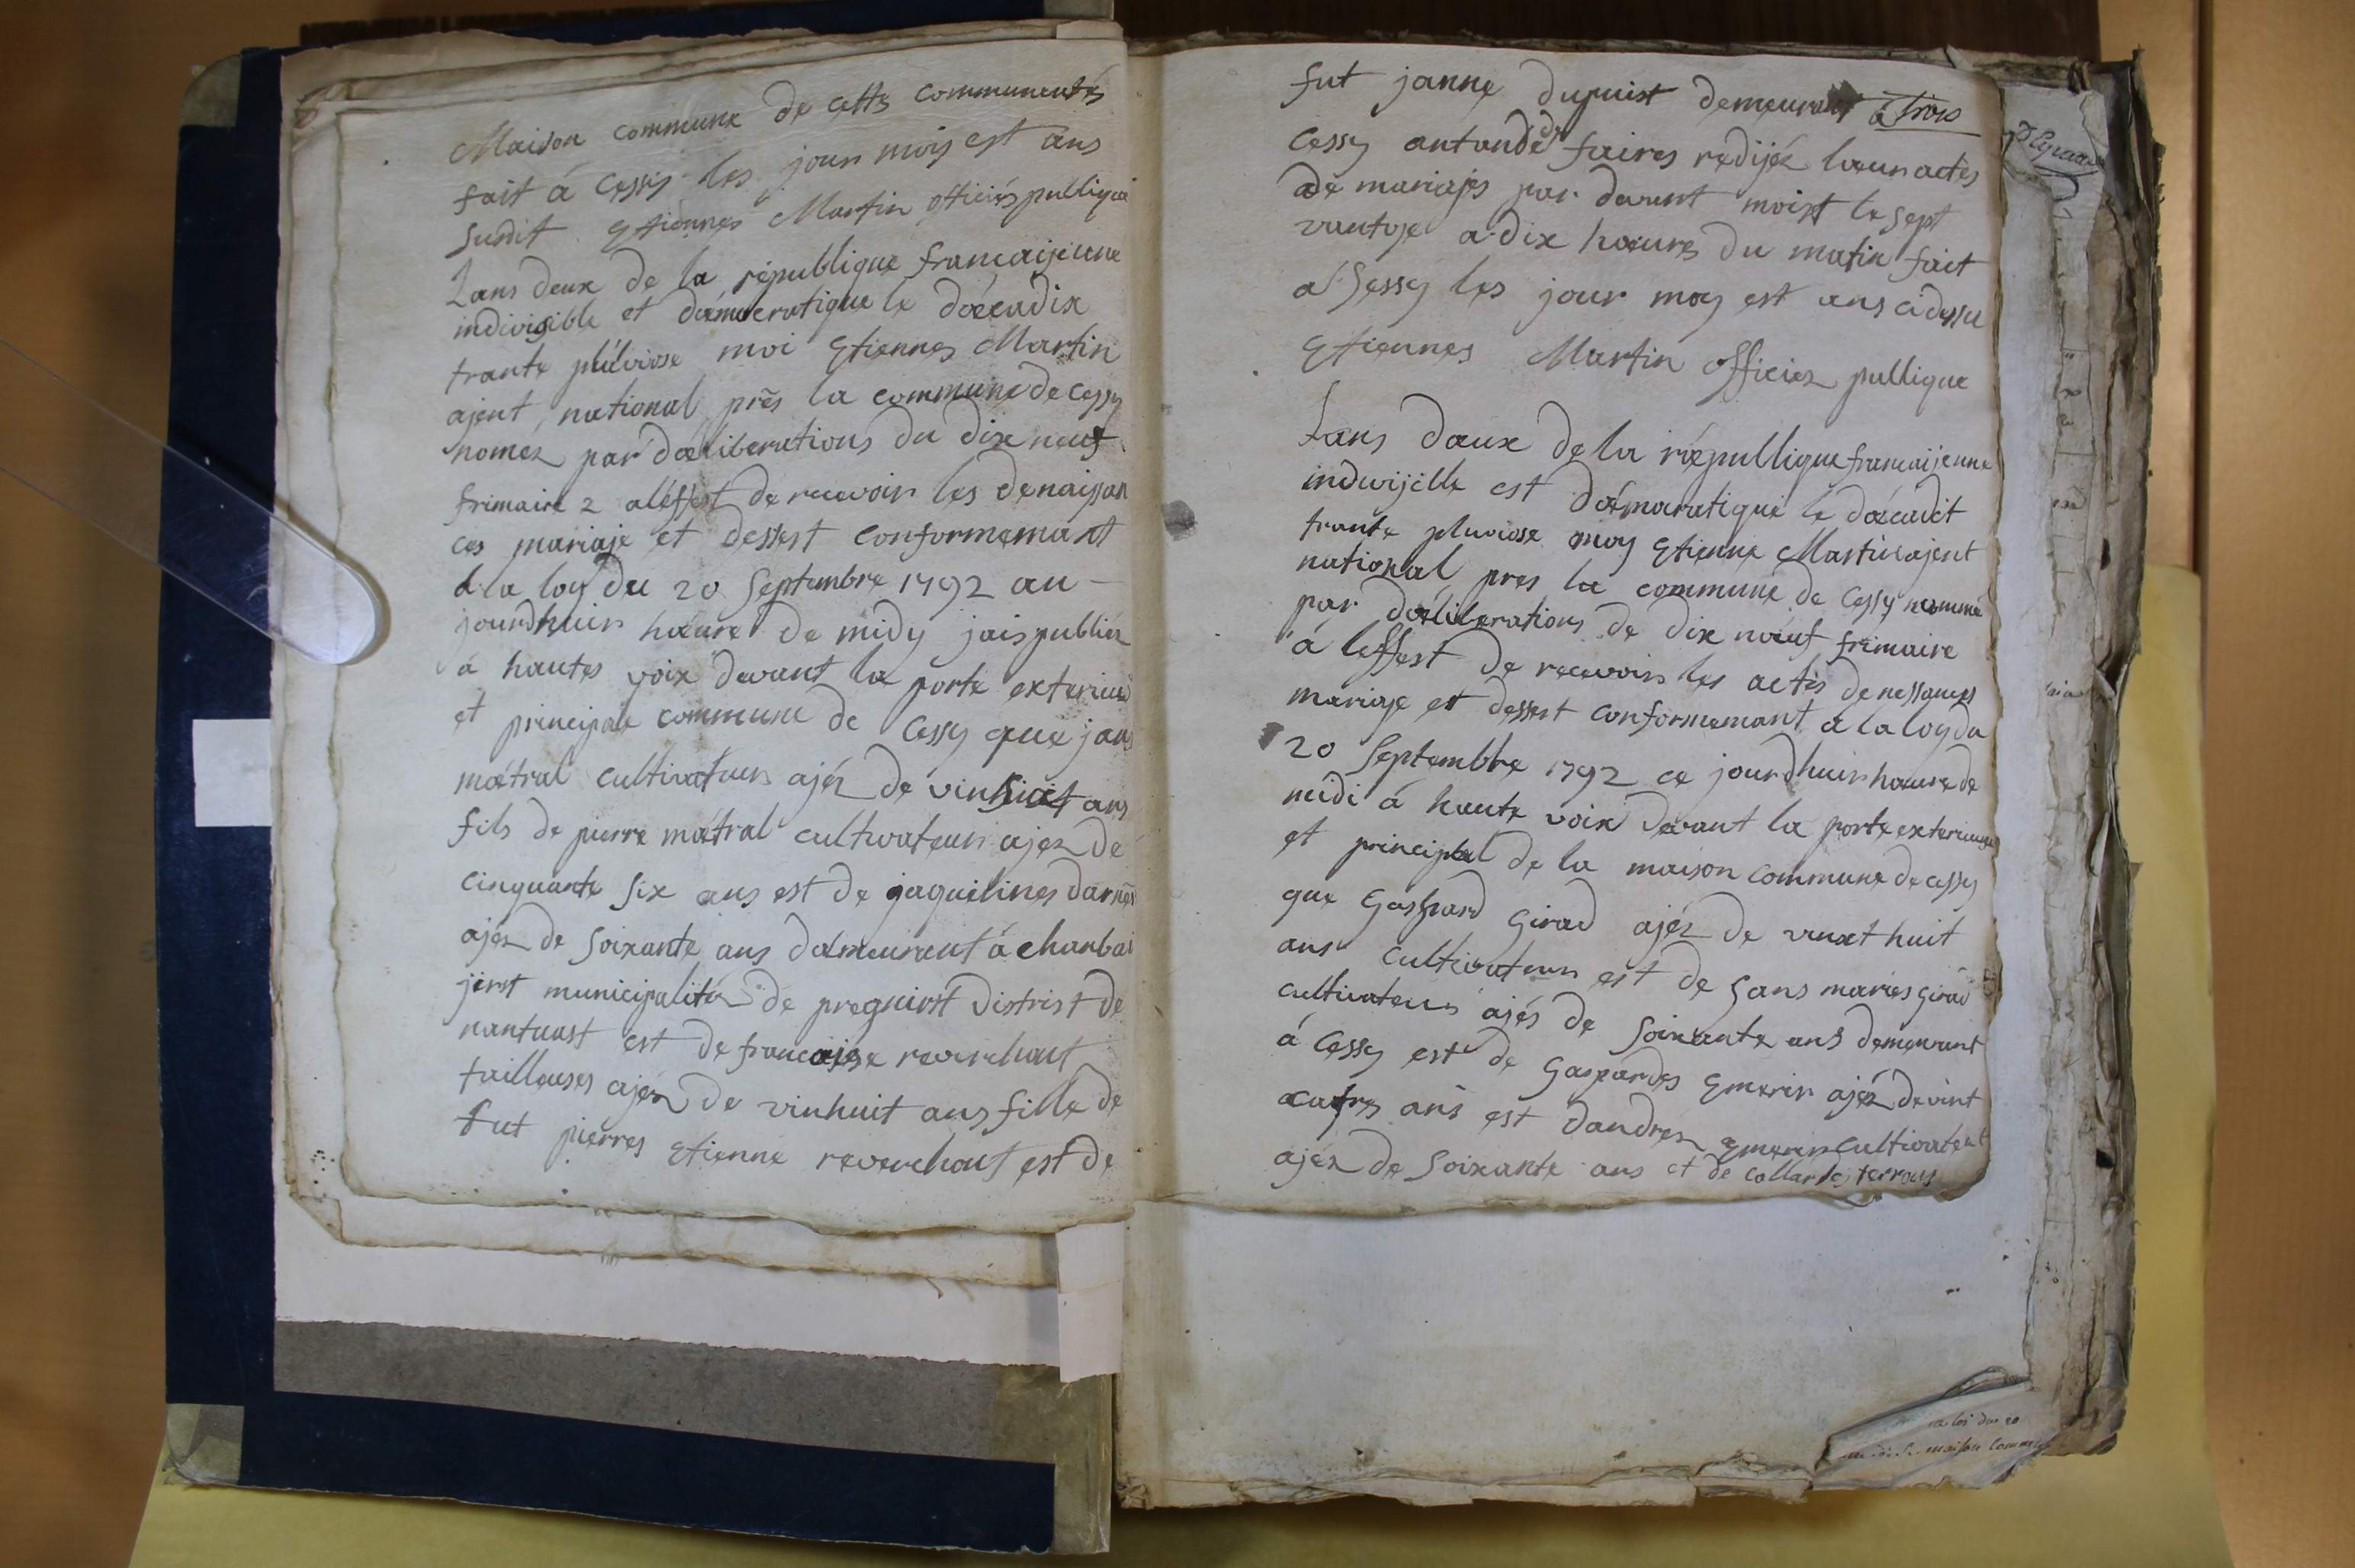 Maison commune de cette communeautés
fait á Cessy les jour mois est ans
susdit Etiennes Martin officiés publique
Lans deux de la république francaijeune
indivisible et dámocratique le dáecadix
trante plúviose moi Etiennes Martin
ajent national près la commune de Cessy
nomez par dáeliberations du dix neuf
frimaire 2 aleffest de recevoir les denaissan
ces mariaje et dessest conformemant
a la loy du 20 Septembre 1792 au-
jourdhuir haeure de midy jais publiez
á hautes voix devant la porte exterieure
et principale commune de Cessy que jans
mátral cultivateur ajéz de vinhuit ans
fils de pierre mátral cultivateur ajez de
cinquante six ans est de jaquelines darnés
ajéz de soixante ans demeurant á chanbai
jerst municipalitéz de pregniost distrist de
nantuast est de francaise reverchont
tailleuses ajéz de vinhuit ans fille de
fut pierres Etienne reverchont est de
fut janne dupuist demeurant á trois
Cessy antandé de faires redijéz laeun actes
de mariajes par devent moist le sept
vantose a dix haeures du matin fait
a Sessy les jour moy est ans cidessu
Etiennes Martin officiez pullique
Lans daeux de la raépullique francaijenne
indivijelle est dáemaratique le dácadit
trante pluviose moy Etienne Martin ajent
national pres la commune de Cessy nommé
par dáeliberations de dix naeuf frimaire
á leffest de recevoir les actes denessances
mariaje et dessest conformemant a la loy du
20 Septembre 1792 ce jourdhuir haeure de
midi á haute voix devant la porte exterieure
et principal de la maison commune de cessy
que Gaspard Girad ajéz de vinxt huit
ans cultivateur est de Sans maries Girad
cultivateur ajés de soixante ans demeurant
á Cessy est de Gaspardes Emerin ajéz de vint
catres ans est dandrez Emerin cultivateur
ajéz de soixante ans et de collarde terroux
la loi du 20
maison Comm